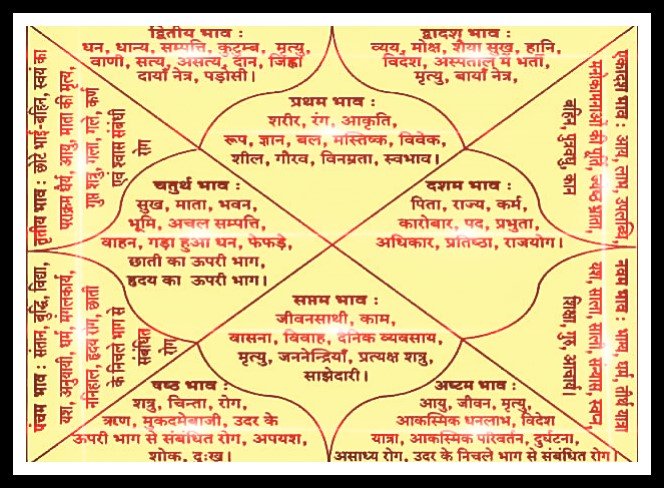 द्वितीय भाव :
धन, धान्य, सम्पत्ति, कुटुम्ब, मृत्यु,
वाणी, सत्य, असत्य, दान, जिह्वा
दायाँ नेत्र, पड़ोसी।
द्वादश भाव :
व्यय, मोक्ष, शैया सुख, हानि,
विदेश, अस्पताल में भर्ती,
मृत्यु, बायाँ नेत्र,
प्रथम भाव :
शरीर, रंग, आकृति,
रूप, ज्ञान, बल, मस्तिष्क, विवेक,
शील, गौरव, विनम्रता, स्वभाव।
तृतीय भाव : छोटे भाई-बहिन, स्वयं का
पराक्रम धैर्य, आयु, माता की मृत्यु,
गुप्त शत्रु, गला, गले, कर्ण
एवं श्वास संबंधी
रोग
एकादश भाव : आय, लाभ, उपलब्धि,
मनोकामनाओं की पूर्ति, ज्येष्ठ भ्राता,
बहिन, पुत्रवधु, कान
चतुर्थ भाव :
सुख, माता, भवन,
भूमि, अचल सम्पत्ति,
वाहन, गड़ा हुआ धन, फेफड़े,
छाती का ऊपरी भाग,
हृदय का ऊपरी भाग।
दशम भाव :
पिता, राज्य, कर्म,
कारोबार, पद, प्रभुता,
अधिकार, प्रतिष्ठा, राजयोग।
पंचम भाव : संतान, बुद्धि, विद्या,
यश, अनुयायी, धर्म, मंगलकार्य,
ननिहाल, हृदय रोग, छाती
के निचले भाग से
संबंधित
रोग,
नवम भाव : भाग्य, धर्म, तीर्थ यात्रा
यश, साला, साली, संन्यास, स्वप्न,
शिक्षा, गुरु, आचार्य।
सप्तम भाव :
जीवनसाथी, काम,
वासना, विवाह, दैनिक व्यवसाय,
मृत्यु, जननेन्द्रियाँ, प्रत्यक्ष शत्रु,
साझेदारी।
षष्ठ भाव :
शत्रु, चिन्ता, रोग,
ऋण, मुकदमेबाजी, उदर के
ऊपरी भाग से संबंधित रोग, अपयश,
शोक, दुःख।
अष्टम भाव :
आयु, जीवन, मृत्यु,
आकस्मिक धनलाभ, विदेश
यात्रा, आकस्मिक परिवर्तन, दुर्घटना,
असाध्य रोग, उदर के निचले भाग से संबंधित रोग।